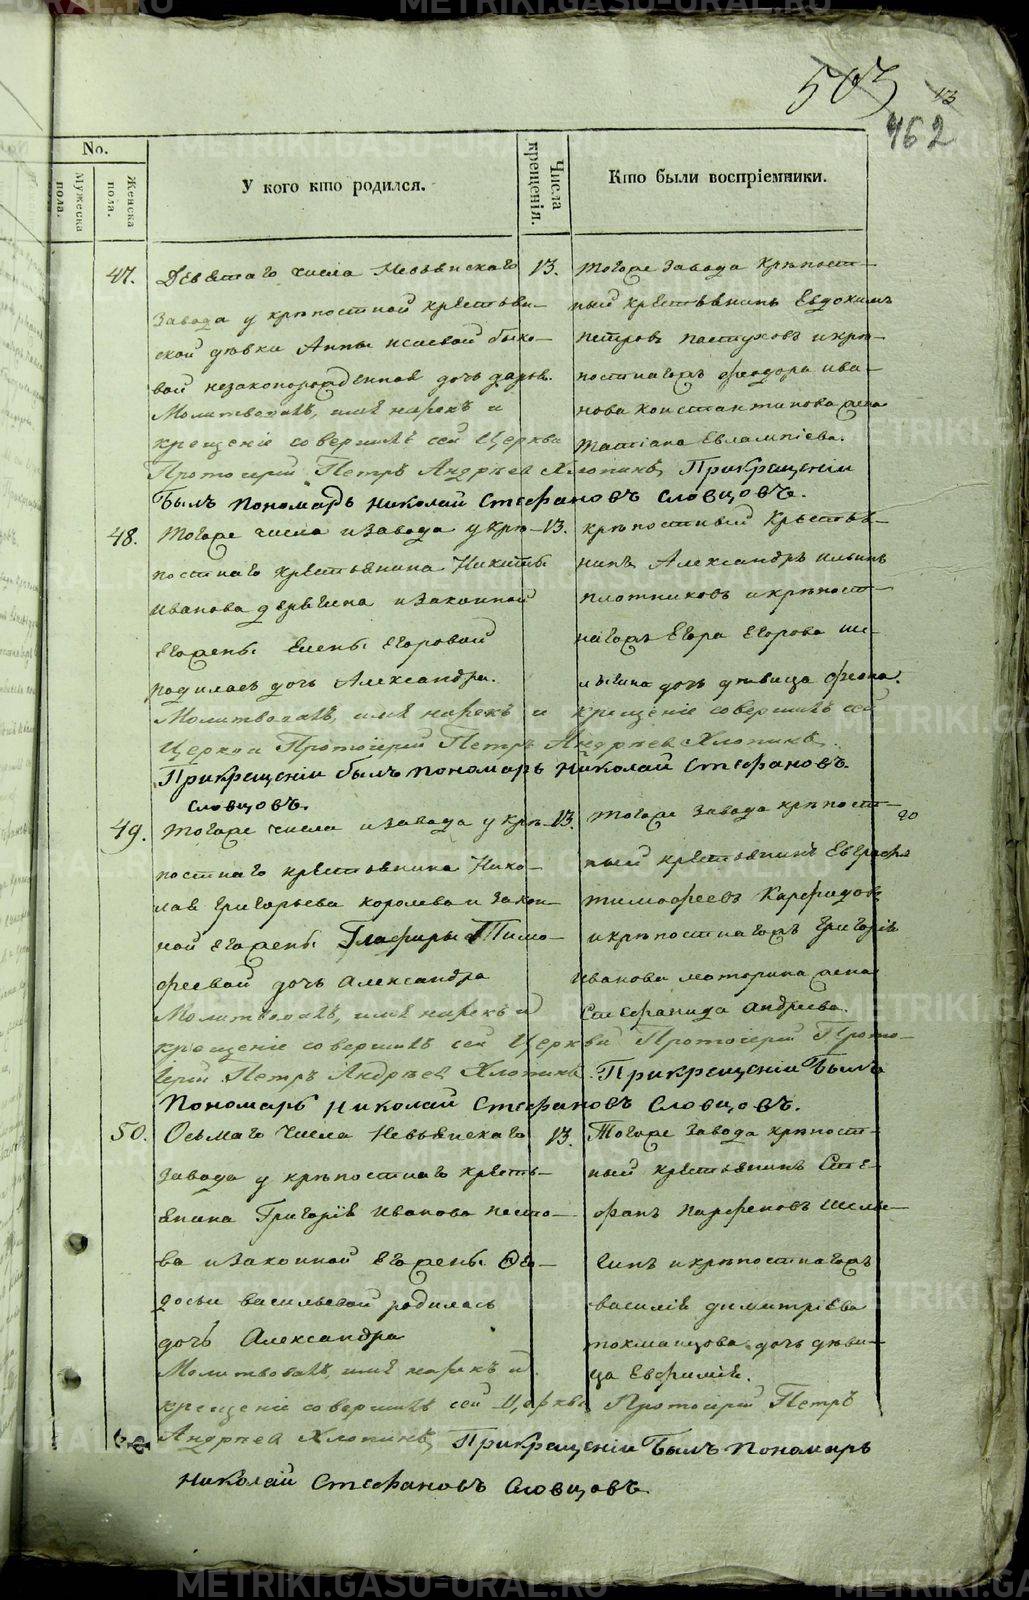 503
13
462
No.
Мужеска пола.
Женска пола.
У кого кто родился.
Числа крещенія.
Кто были воспріемники.
47.
Девятаго числа Невьянскаго
завода у крѣпостной крестьян-
ской дѣвки Анны Исаевой быко-
вой незаконорожденная дочь дарья.
Молитвовалъ, имя нарекъ и
крещеніе совершилъ сей Церкви
Протоіерей Петръ Андреевъ Хлопинъ, При крещеніи
былъ пономарь Николай Стефановъ Словцовъ.
13.
тогоже завода крѣпост-
ный крестьянинъ Евдокимъ
петровъ пастуховъ и крѣ-
постнагожъ феодора ива-
нова константинова жена
татіана Евлампіева.
48.
тогоже числа и завода у крѣ-
постнаго крестьянина Никиты
Иванова и законной
его жены Елены Егоровой
родилась дочь Александра.
Молитвовалъ, имя нарекъ и крещеніе совершилъ сей
Церкви Протоіерей Петръ Андреевъ Хлопинъ.
При крещеніи былъ пономарь Николай Стефановъ
Словцовъ.
13.
крѣпостный крестья-
нинъ Александръ ильинъ
плотниковъ и крѣпост-
нагожъ Егора Егорова ше-
лыгина дочь дѣвица
49.
тогоже числа и завода у крѣ-
постнаго крестьянина Нико-
лая григорьева королева и закон-
ной его жены Глафиры Тимо-
феевой дочь Александра
Молитвовалъ, имя нарекъ и
крещеніе совершилъ сей Церкви Протоіерей Прото-
іерей Петръ Андреевъ Хлопинъ. При крещеніи былъ
Пономарь Николай Стефановъ Словцовъ.
13.
тогоже завода крѣпост-
ный крестьянинъ Евграфъ
тимофеевъ Карфидовъ
и крѣпостнагожъ григорія
Иванова маторина жена
Стефанида андреева.
20
50.
Осьмаго числа Невьянскаго
завода у крѣпостнаго кресть-
янина Григорія Иванова
и законной его жены Фео-
досьи васильевой родилась
дочь Александра
Молитвовалъ, имя нарекъ и
крещеніе совершилъ сей Церкви Протоіерей Петръ
Андреевъ Хлопинъ, При крещеніи былъ пономарь
Николай Стефановъ Словцовъ
13.
Тогоже завода крѣпост-
ный крестьянинъ Сте-
фанъ парфеновъ шелы-
гинъ и крѣпостнагожъ
василія димитріева
токманцова дочь дѣви-
ца Евфимія.
METRIKI.GASU-URAL.RU